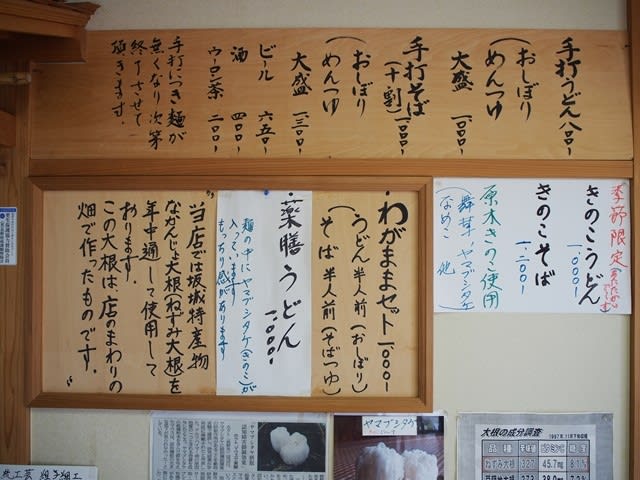 手打うどん 八〇〇
(おしぼり
めんつゆ
大盛 一、〇〇〇
手打そば(十割)一、〇〇〇
(おしぼり
めんつゆ
大盛 一、三〇〇
ビール 六五〇
酒 四〇〇
ウーロン茶 二〇〇
手打につき麺が
無くなり次第
終了させて
頂きます。
季節限定
きのこうどん
一、〇〇〇
きのこそば
一、二〇〇
原木きのこ使用
(舞茸、ヤマブシタケ
なめこ 他)
わがままセット 一、〇〇〇
うどん半人前(おしぼり)
そば半人前(そばつゆ)
薬膳うどん
一、〇〇〇
麺の中にヤマブシタケ(きのこ)が
入っています
もっちり感があります
当店では坂城特産物
なかんじょ大根(ねずみ大根)を
年中通して使用して
おります。
この大根は、店のまわりの
畑で作ったものです。
ヤマブシタケ
大根の成分調査
ねずみ大根 327 45.7mg 8.1%